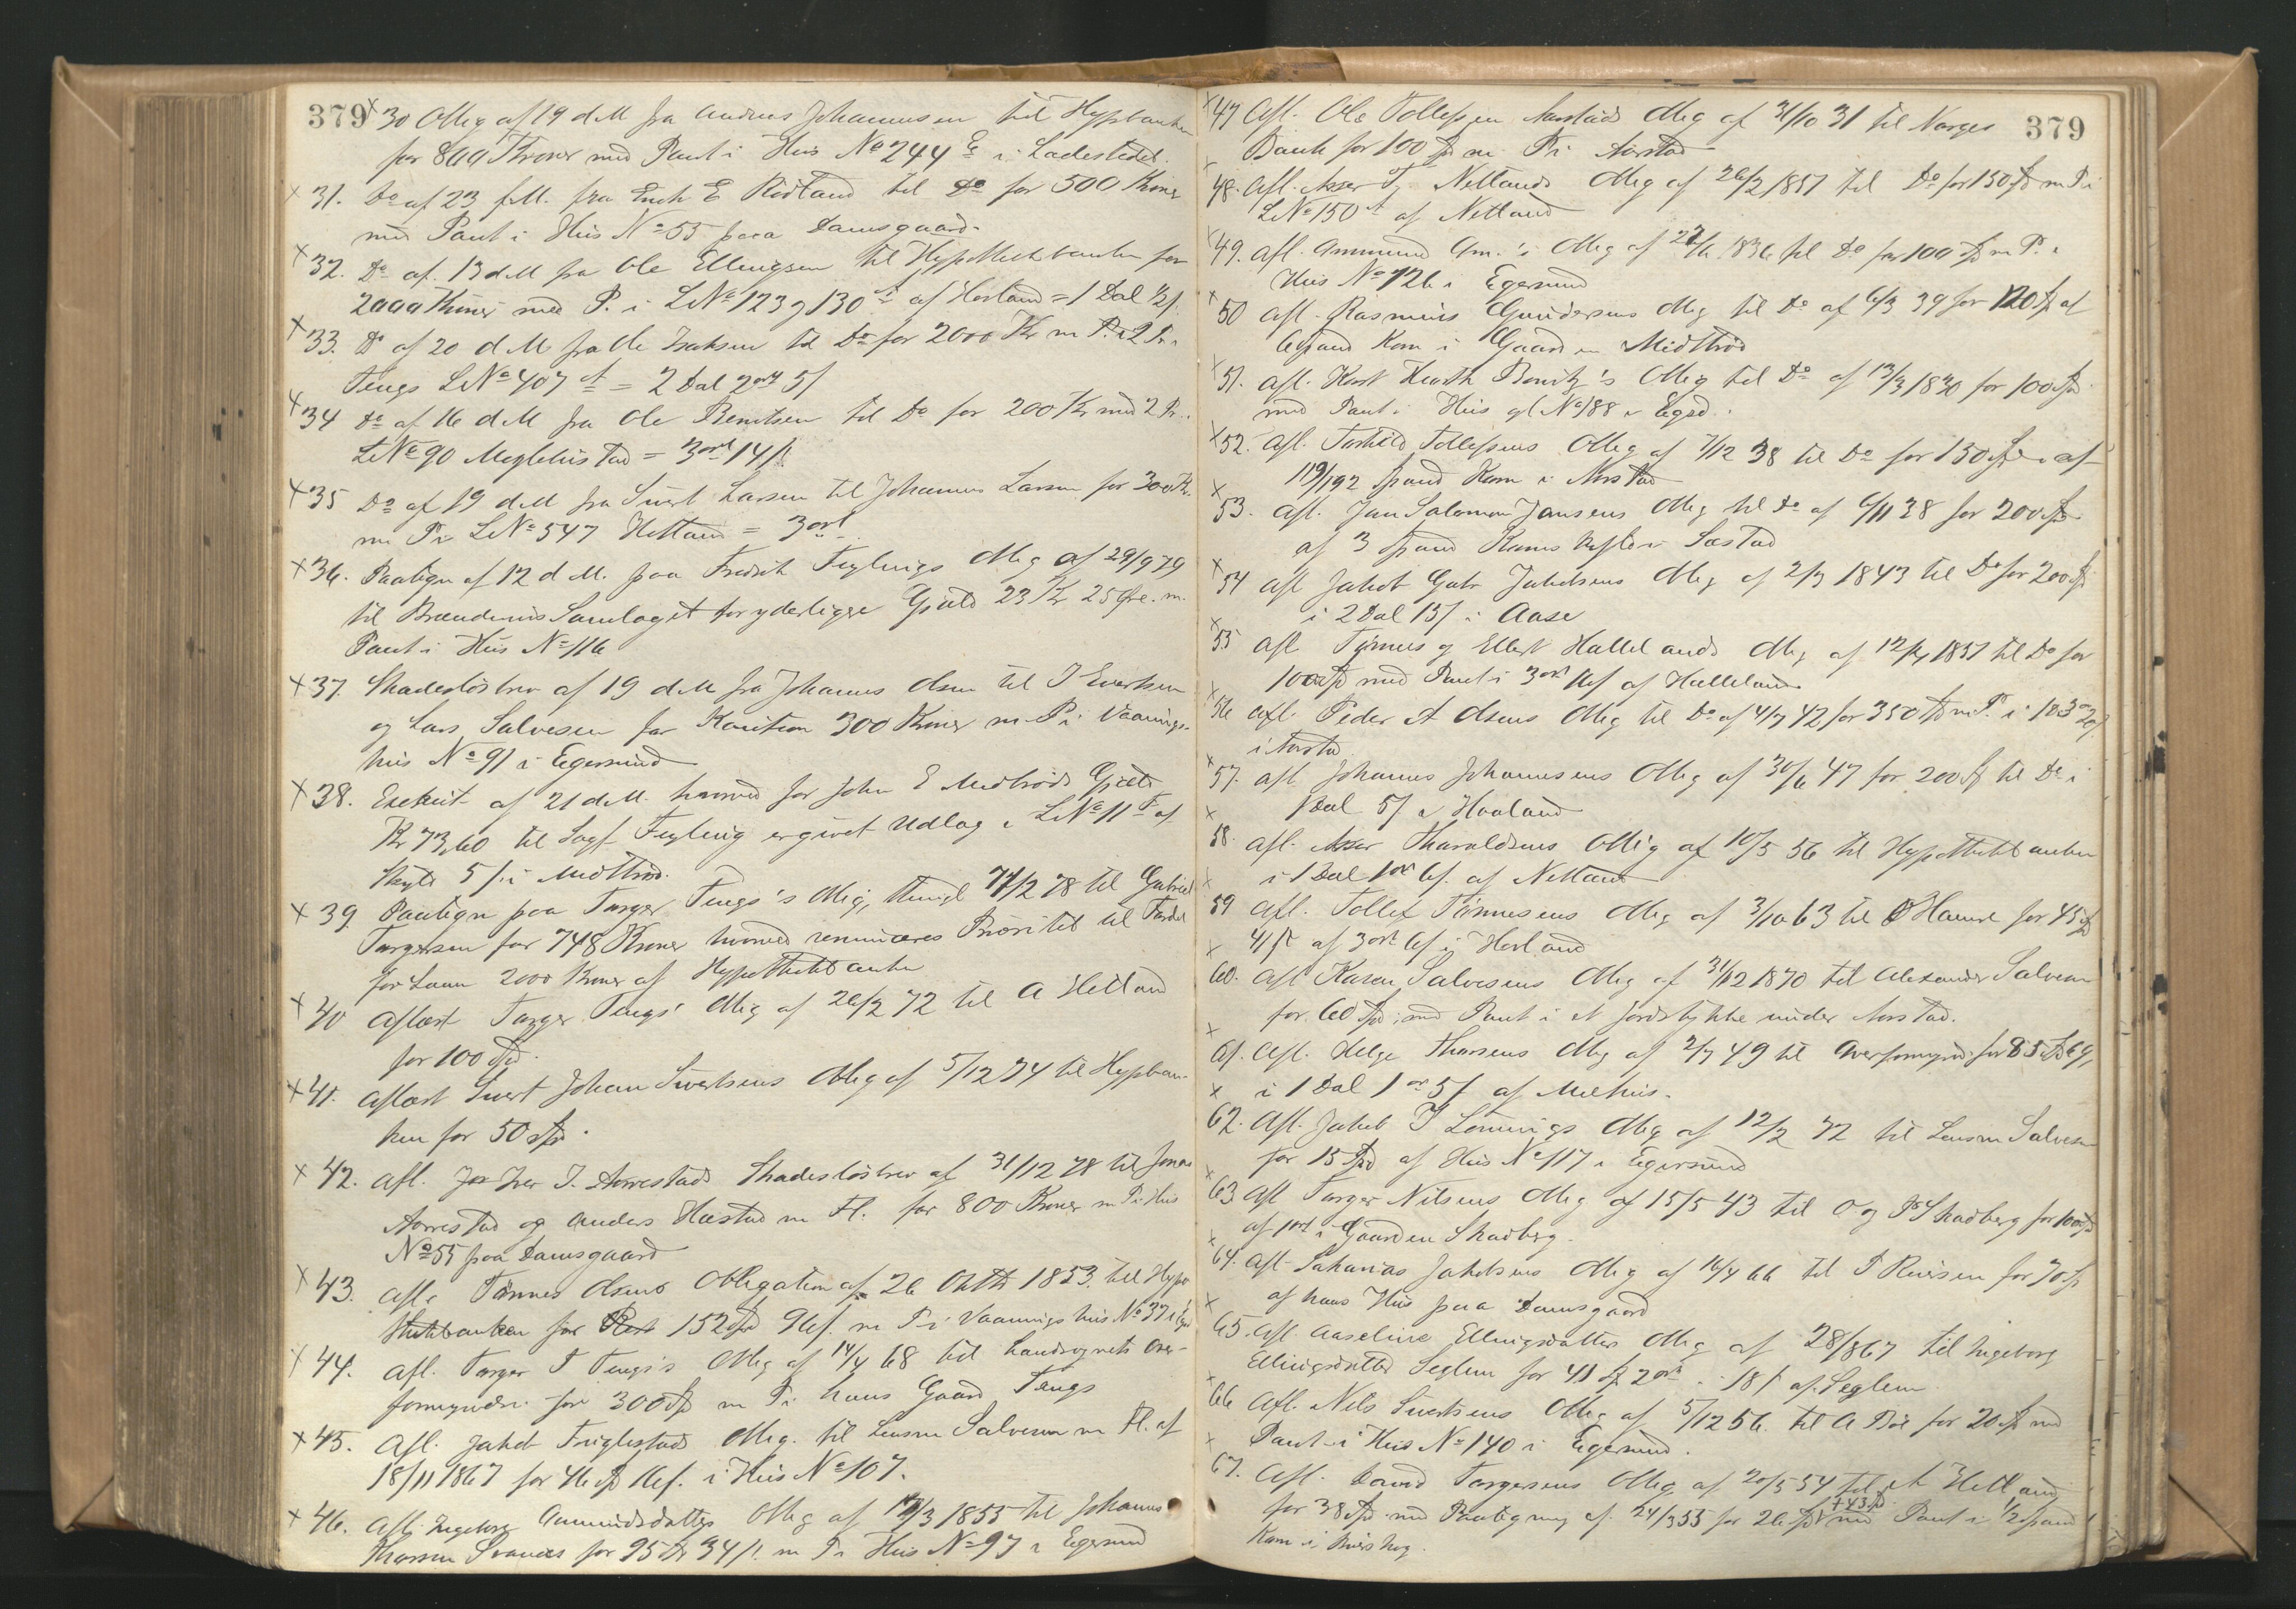 379 × 30 Oblig af 19 d M fra Andreas Johannesen til Hypbanken
for 800 Kroner med Pant i Hus No 244 E i Ladestedet.
× 31. Do af 23 f.M. fra Enok E Rødland til Do for 500 Kroner
med Pant i Hus No 55 paa Damsgaard.
× 32. Do af 13 d M fra Ole Ellingsen til Hypothekbanken for
2000 Kroner med P. i LNo 123 og 130 af Hovland = 1 Dal
× 33. Do af 20 d M fra Ole Isaksen til Do for 2000 Kr m P. i 2 Pr.
Tengs LNo 407 A = 2 Dal 2 ort 5 ſ
× 34 Do af 16 d M fra Ole Berntsen til Do for 200 Kr med 2 Pr.
LNo 90 Meglehus Tad = 3 ort 14 ſ.
× 35 Do af 19 d M fra Sivert Larsen til Johannes Larsen for 300 Kr.
m P i LNo 547 Hetland = 3 ort
× 36. Paategn af 12 d M. paa Fredrik Feylings Oblig af 29/9 79
til Brændevins Samlaget for yderligere Gjæld 23 Kr 25 Øre. m.
Pant i Hus No 116
× 37. Skadesløsbrev af 19 d M fra Johannes Olsen til I Evertsen
og Lars Salvesen for Kaution 300 Kroner m P i Vaanings-
hus No 91 i Egersund
× 38. Exekut af 21 d M. hvorved for John E Midbrøds Gjæld
Kr 73,60 til Sagf Feyling er givet Udlag i LNo 11 af
Skyld 5 ſ i Midbrød.
× 39. Paategn paa Torger Tengs's Oblig, thingl 7/2 78 til Gabriel
Torgersen for 748 Kroner hvorved renunceres Prioritet til Fordel
for Laan 2000 Kroner af Hypothekbanken
× 40 Aflæst Torger Tengs' Oblig af 26/2 72 til A Hetland
for 100 Spd.
× 41. Aflæst Sivert Johan Sivertsens Oblig af 5/12 74 til Hypban-
ken for 50 Spd.
× 42. Afl. Iver I. Aarrestads Skadesløsbrev af 31/12 78 til Jonas
Aarrestad og Anders Hæstad m Fl. for 800 Kroner m P i Hus
No 55 paa Damsgaard
× 43. Afl. Tønnes Olsens Obligation af 26 Oktb 1853 til Hypo
thekbanken for Rest 152 Spd 96 ſ. m P i Vaaningshus No 37 i
× 44. Afl. Torger T Tengs's Oblig af 14/4 68 til Landsognets Over-
formynderi for 300 Spd m P i hans Gaard Tengs
× 45. Afl. Jakob Fuglestads Oblig. til Lensm Salvesen m Fl. af
18/11 1867 for 46 Spd 16 ſ. i Hus No 107.
× 46. Afl. Ingeborg Aamundsdatters Oblig af 1855 til Johannes
Thorsen Svanæs for 95 Spd 34 ſ. m P i Hus No 97 i Egersund
× 47 Afl. Ole Tollefsen Aarstads Oblig af 31/10 31 til Norges 379
Bank for 100 Spd m P i Aarstad
× 48. Afl. Asser T. Netlands Oblig af 26/2 1857 til Do for 150 Spd m P i
LNo 150 A af Netland
× 49. Afl. Ammund Am.'s Oblig af 1836 til Do for 100 Spd m P. i
Hus No 126 i Egersund
× 50 Afl. Rasmus Gundersens Oblig til Do af 6/3 39 for 120 Spd af
Spand Korn i Gaarden Midbrød
× 51. Afl. Kort Bonitz's Oblig til Do af 13/3 1830 for 100 Spd
med Pant i Hus gl No 188 i Egsd.
× 52. Afl. Torkild Tollefsens Oblig af 7/12 38 til Do for 150 Spd i af
119/192 Spand Korn i Aarstad
× 53. Afl. Jan Salomon Jansens Oblig til Do af 6/11 38 for 200 Spd
af 3 Spand Korns Hefte i Sæstad
× 54 Afl Jakob Gabr Jakobsens Oblig af 2/3 1843 til Do for 200 Spd
i 2 Dal 15 ſ i Aase
× 55 Afl Tønnes og Ellert Hallelands Oblig af 12/4 1857 til Do for
100 Spd med Pant i 3 ort 16 ſ af Halleland
× 56 Afl. Peder A Olsens Oblig til Do af 4/7 42 for 350 Spd m P. i
i Aarstad
× 57. Afl Johannes Johannesens Oblig af 30/6 47 for 200 Spd til Do i
1 Dal 5 ſ i Hovland
× 58. Afl. Asser Haraldsens Oblig af 10/5 56 til Hypothekbanken
i 1 Dal 1 ort 6 ſ. af Netland
× 59 Afl. Tollef Tønnesens Oblig af 3/10 63 til O Hamre for 45 Spd
41 ſ af 3 ort 6 ſ i Hovland
× 60. Afl Karen Salvesens Oblig af 31/12 1870 til Alexander Salvesen
for 60 Spd, med Pant i et Jordstykke under Aarstad.
× 61. Afl. Helge Thorsens Oblig af 2/7 49 til Overformynd. for 85 Spd 69,
× i 1 Dal 1 ort 5 ſ af Melhus.
62. Afl. Jakob I Lønnings Oblig af 12/2 72 til Lensm Salvesen
for 15 Spd af Hus No 117 i Egersund
× 63 Afl Torger Nilsens Oblig af 15/5 43 til O og P Skadberg for 100 Spd
af 1 ort i Gaarden Skadberg.
× 64. Afl Sakarias Jakobsens Oblig af 16/4 66 til P Reiersen for 70 Sp
af hans Hus paa Damsgaard
× 65. Afl Aaseline Ellingsdatters Oblig af 28/8 67 til Ingeborg
Ellingsdatter Seglem for 41 Sp 2 ort i 18 ſ af Seglem
× 66 Afl. Nils Sivertsens Oblig af 5/12 56 til A Bøe for 20 Spd med
Pant i Hus No 140 i Egersund.
× 67. Afl. David Torgersens Oblig af 20/5 54 til A Hetland
+ 43 Spd.
for 38 Spd med Paategning af 24/3 55 for 26 Spd med Pant i 1/2 Spand
Korn i